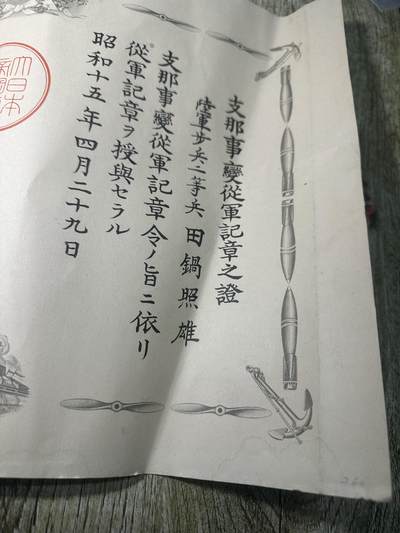 支那事變從軍記章之證
陸軍步兵二等兵 田鍋照雄
支那事變從軍記章令ノ旨ニ依リ
從軍記章ヲ授與セラル
昭和十五年四月二十九日
大日本